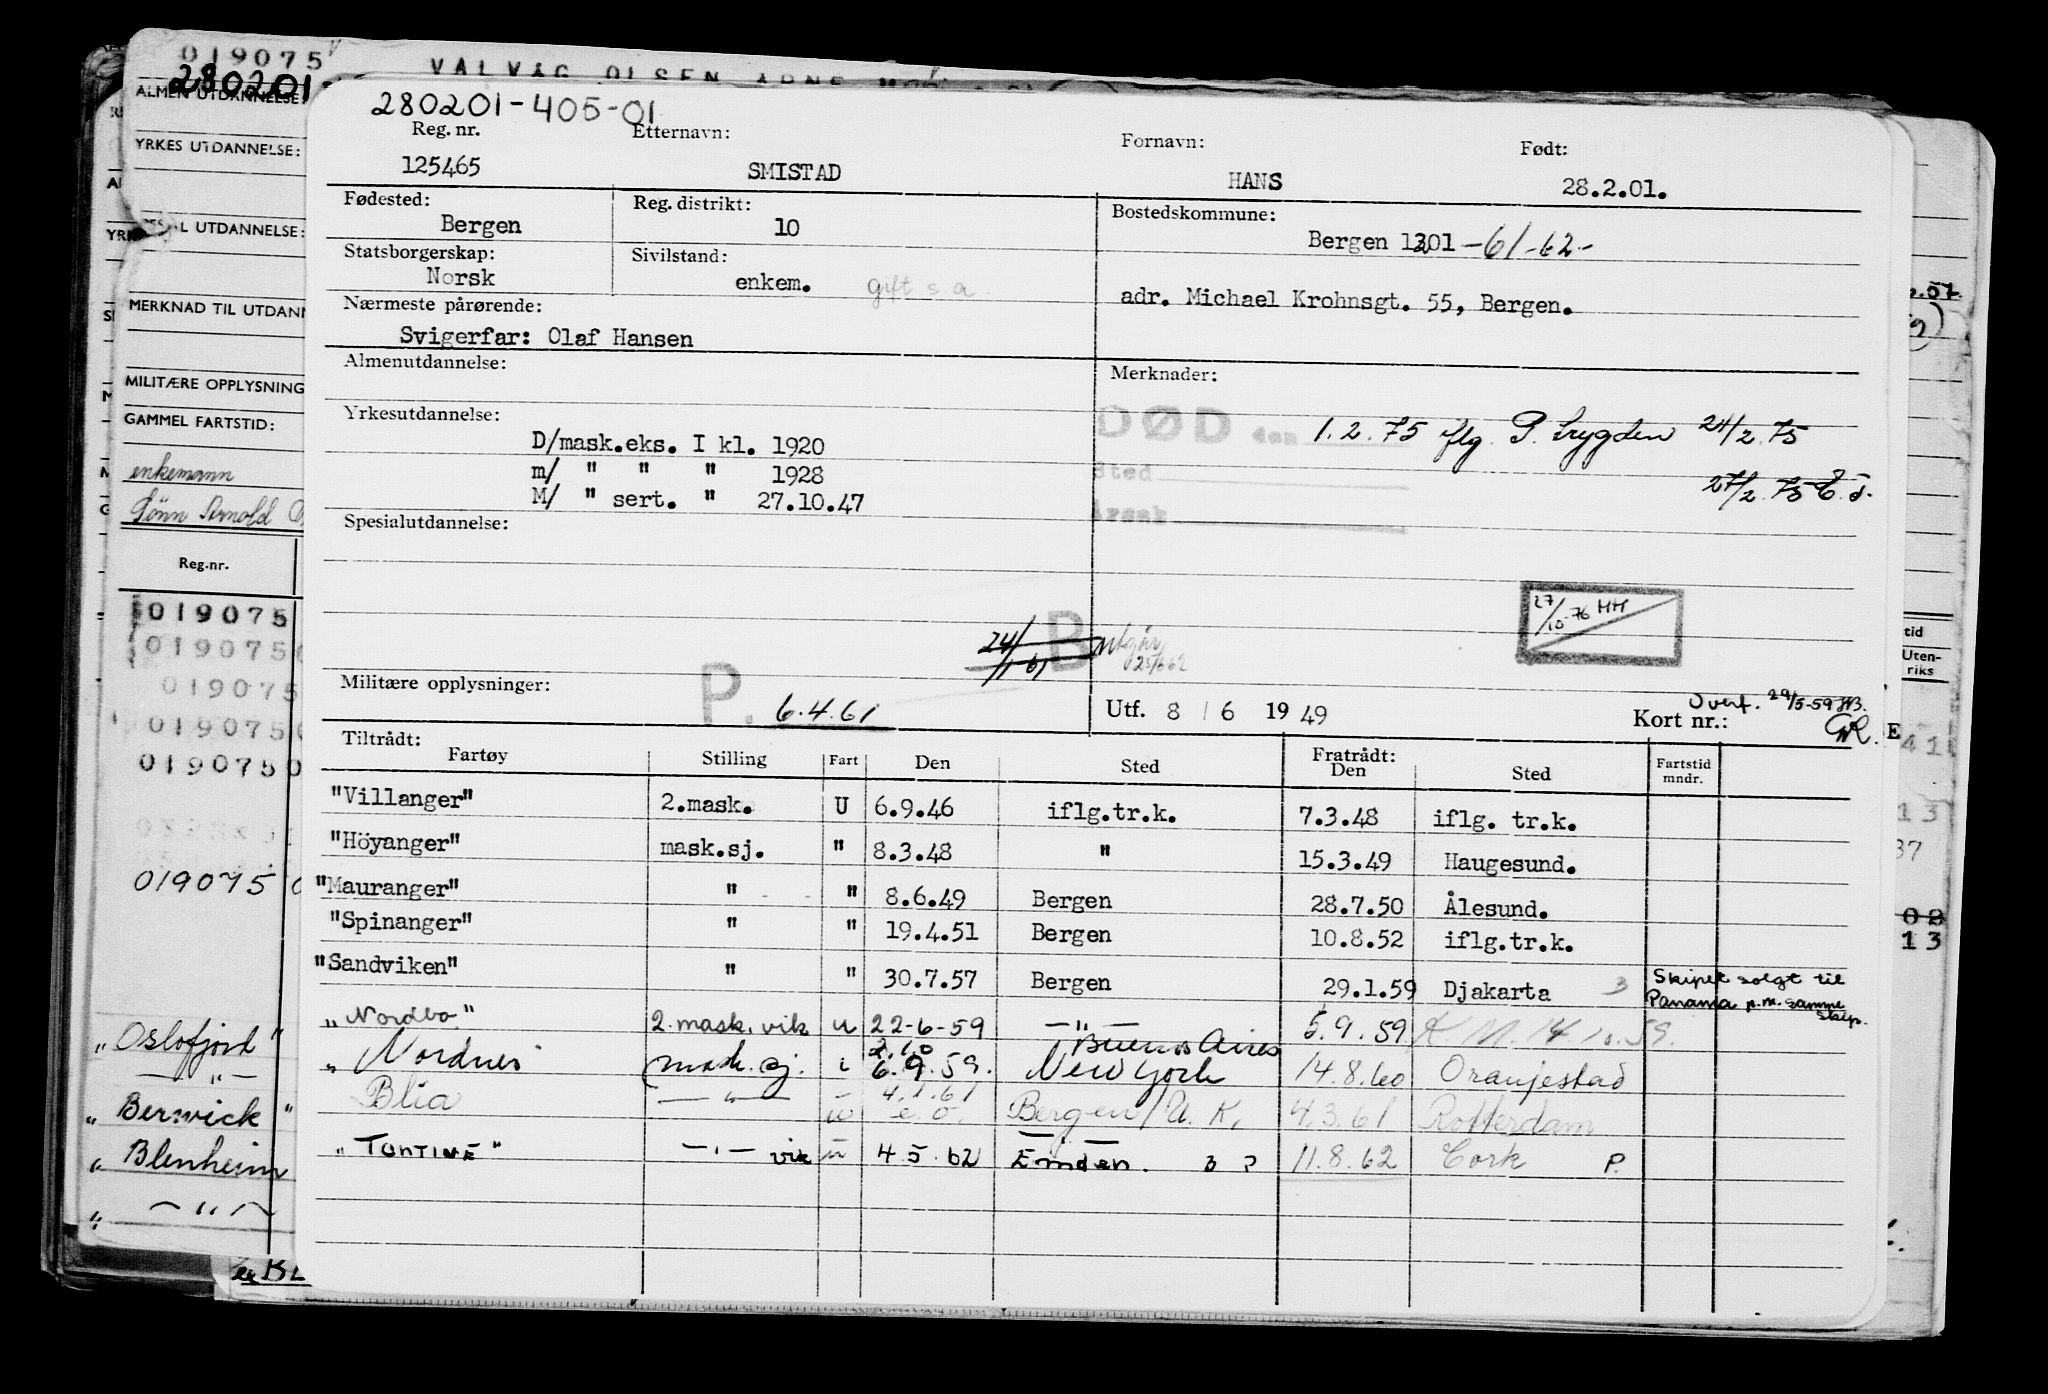 019075
VALVÅG OLSEN ARNE
280201
ALMEN UTDANNELSE:
YRKES UTDANNELSE:
UTDANNELSE:
MERKNAD TIL UTDAN
MILITÆRE OPPLYSNING
GAMMEL FARTSTID:
enkemann
Sønn Arnold
Reg.nr.
019075
019075
019075
019075
019075
019075
"Oslofjord"
— " —
"Berwick"
"Blenheim
280201-405-01
Reg. nr. Etternavn: Fornavn: Født:
125465 SMISTAD HANS 28.2.01.
Fødested: Reg. distrikt: Bostedskommune:
Bergen 10 Bergen 1301 -61-62-
Statsborgerskap: Sivilstand:
Norsk enkem. gift s.a. adr. Michael Krohnsgt. 55, Bergen.
Nærmeste pårørende:
Svigerfar: Olaf Hansen
Almenutdannelse: Merknader:
Yrkesutdannelse: DØD den 1.2.75 flg. P. trygden 24/2.75
D/mask.eks. I kl. 1920
m/ " " " 1928 Sted 27/2.75
M/ " sert. " 27.10.47 Årsak
Spesialutdannelse:
27/10-76 HH
24/1 61 B utgår 25/6 62
Militære opplysninger: P. 6.4.61 Utf. 8 / 6 1949 Kort nr.: Overf. 29/5-59
Tiltrådt: Fratrådt:
Fartøy Stilling Fart Den Sted Den Sted Fartstid mndr.
"Villanger" 2.mask. U 6.9.46 iflg.tr.k. 7.3.48 iflg. tr.k.
"Höyanger" mask.sj. " 8.3.48 " 15.3.49 Haugesund.
"Mauranger" " " 8.6.49 Bergen 28.7.50 Ålesund.
"Spinanger" " " 19.4.51 Bergen 10.8.52 iflg.tr.k.
"Sandviken" " " 30.7.57 Bergen 29.1.59 Djakarta 3 Skipet solgt til Panama p.m. samme skip.
"Nordbo" 2.mask.vik u 22-6-59 — " — 5.9.59 14.10.59.
" Nordnes mask.sj. 2.10 6.9.59. Buenos Aires New York 14.8.60 Oranjestad
Blia — " — u 4.1.61 e.o. Bergen/U.K. 4.3.61 Rotterdam
"TONTINE" — " — vik u 4 5. 62 Emden. 3 ? 11.8.62 Cork P.
tid
Uten-
riks
41
13
37
02
13